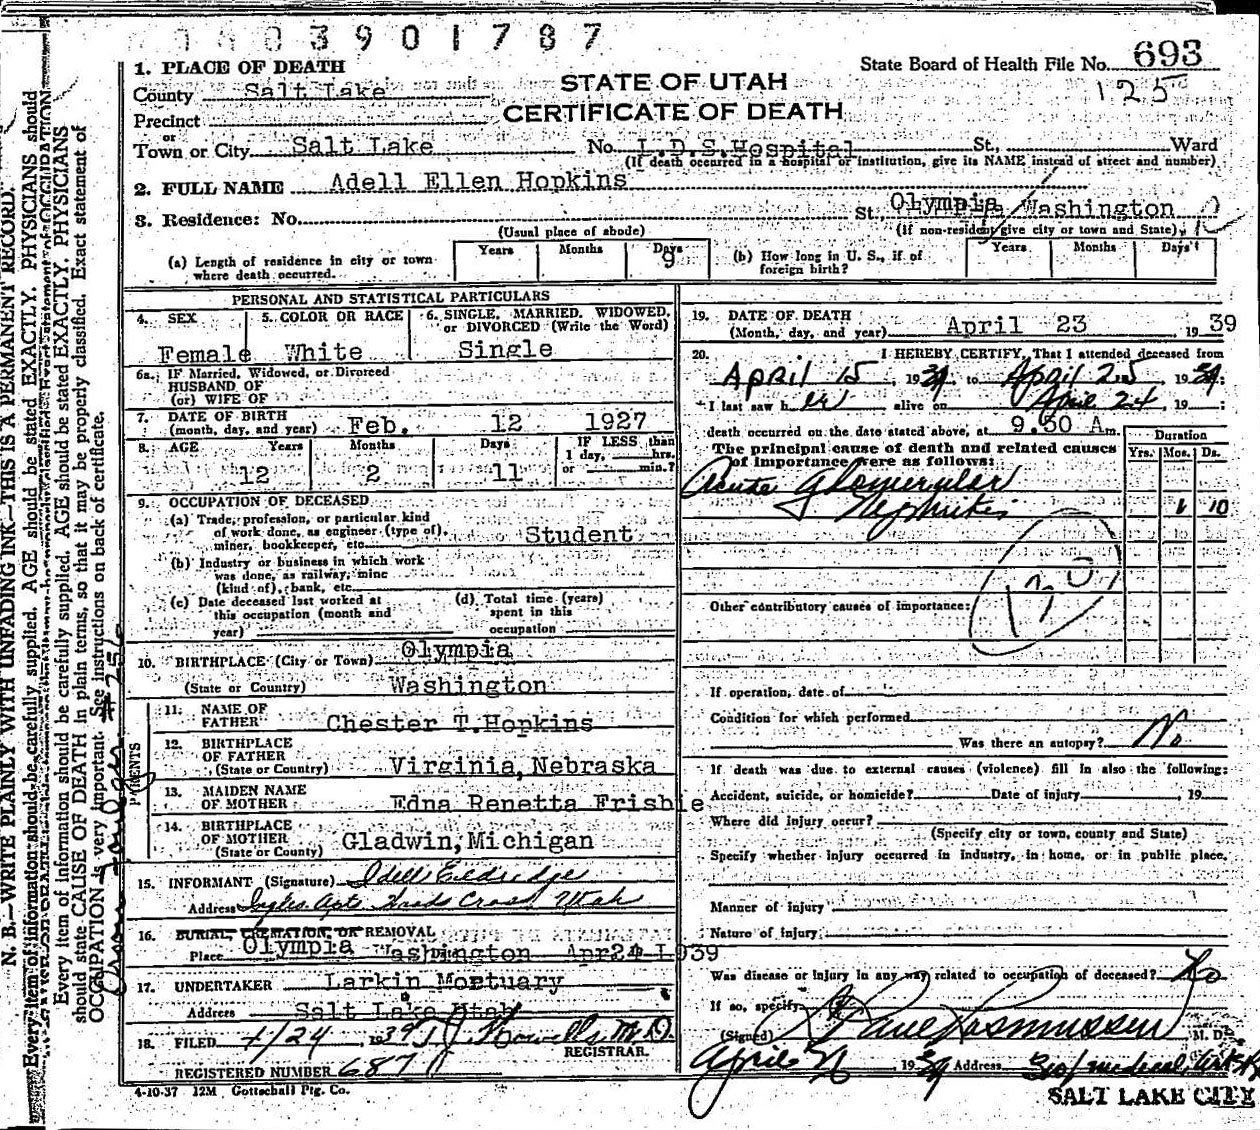 3901787
1. PLACE OF DEATH
State Board of Health File No. 693
125
STATE OF UTAH
CERTIFICATE OF DEATH
County Salt Lake
Precinct
or
Town or City Salt Lake No. L.D.S.Hospital St., Ward
(If death occurred in a hospital or institution, give its NAME instead of street and number)
2. FULL NAME Adell Ellen Hopkins
3. Residence: No. St. Olympia Washington
(Usual place of abode) (If non-resident give city or town and State)
(a) Length of residence in city or town where death occurred. Years Months Days 9
(b) How long in U. S., if of foreign birth? Years Months Days
PERSONAL AND STATISTICAL PARTICULARS
4. SEX Female
5. COLOR OR RACE White
6. SINGLE, MARRIED, WIDOWED, or DIVORCED (Write the Word) Single
6a. IF Married, Widowed, or Divorced
HUSBAND OF
(or) WIFE OF
7. DATE OF BIRTH
(month, day, and year) Feb. 12 1927
8. AGE Years Months Days IF LESS than
1 day, hrs.
or min.?
12 2 11
9. OCCUPATION OF DECEASED
(a) Trade, profession, or particular kind
of work done, as engineer (type of),
miner, bookkeeper, etc. Student
(b) Industry or business in which work
was done, as railway, mine
(kind of), bank, etc.
(c) Date deceased last worked at
this occupation (month and
year)
(d) Total time (years)
spent in this
occupation
10. BIRTHPLACE (City or Town) Olympia
(State or Country) Washington
PARENTS
11. NAME OF
FATHER Chester T.Hopkins
12. BIRTHPLACE
OF FATHER
(State or Country) Virginia, Nebraska
13. MAIDEN NAME
OF MOTHER Edna Renetta Frisbie
14. BIRTHPLACE
OF MOTHER
(State or Country) Gladwin, Michigan
15. INFORMANT (Signature) Idell Eldredge
Address Apts Woods Cross, Utah
16. BURIAL, CREMATION, OR REMOVAL
Place Olympia Washington Apr 24 1939
17. UNDERTAKER Larkin Mortuary
Address Salt Lake Utah
18. FILED 4/24 1939 M.D.
REGISTRAR.
REGISTERED NUMBER 687
4-10-37 12M Gottschall Ptg. Co.
19. DATE OF DEATH
(Month, day, and year) April 23 1939
20. I HEREBY CERTIFY, That I attended deceased from
April 15, 1939, to April 25, 1939.
I last saw her alive on April 24, 19 ;
death occurred on the date stated above, at 9.50 A m.
The principal cause of death and related causes
of importance were as follows:
Duration
Yrs. Mos. Ds.
Acute Glomerular
Nephritis 1 10
130
Other contributory causes of importance:
If operation, date of
Condition for which performed
Was there an autopsy? No
If death was due to external causes (violence) fill in also the following:
Accident, suicide, or homicide? Date of injury 19
Where did injury occur?
(Specify city or town, county and State)
Specify whether injury occurred in industry, in home, or in public place.
Manner of injury
Nature of injury
Was disease or injury in any way related to occupation of deceased? No
If so, specify
(Signed) Paul Rasmussen M. D.
April 1939 Address
SALT LAKE CITY
N. B.—WRITE PLAINLY WITH UNFADING INK—THIS IS A PERMANENT RECORD.
Every item of information should be carefully supplied. AGE should be stated EXACTLY. PHYSICIANS should
Every item of information should be carefully supplied. AGE should be stated EXACTLY. PHYSICIANS
should state CAUSE OF DEATH in plain terms, so that it may be properly classified. Exact statement of
OCCUPATION is very important. See instructions on back of certificate.